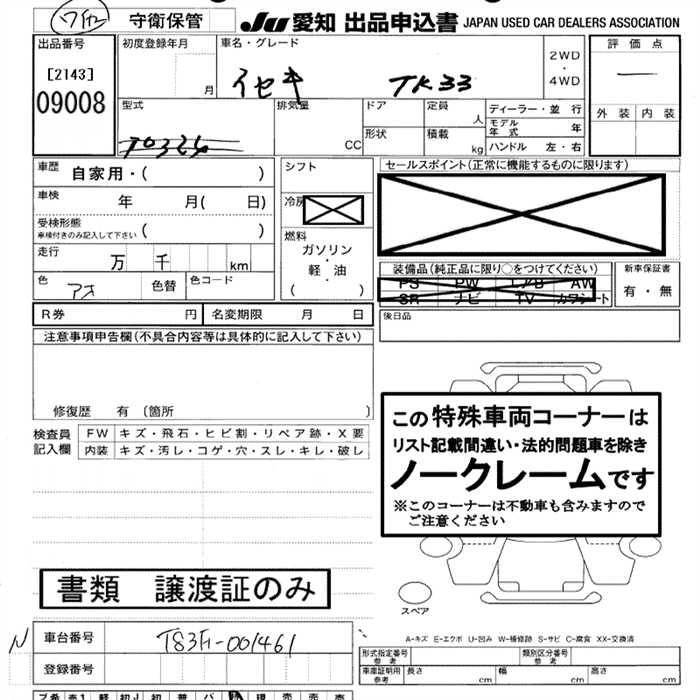 守衛保管
Ju 愛知 出品申込書 JAPAN USED CAR DEALERS ASSOCIATION
出品番号
[2143]
09008
初度登録年月
月
車名・グレード
イセキ TK33
2WD
・
4WD
評価点
—
外装 内装
型式
排気量
CC
ドア
形状
定員
人
積載
kg
ディーラー・並行
モデル年式 年
ハンドル 左・右
車歴 自家用・( )
車検 年 月( 日)
受検形態
車検付きのみ記入して下さい ( )
走行 万 千 km
色 アオ 色替 色コード
シフト
冷房
燃料
ガソリン
・
軽・油
( )
セールスポイント(正常に機能するものに限ります)
装備品(純正品に限り○をつけてください)
PS PW AW
SR ナビ TV カワシート
新車保証書
有・無
後日品
R券 円 名変期限 月 日
注意事項申告欄(不具合内容等は具体的に記入して下さい)
修復歴 有 (箇所 )
検査員記入欄
FW キズ・飛石・ヒビ割・リペア跡・X要
内装 キズ・汚し・コゲ・穴・スレ・キレ・破し
この特殊車両コーナーは
リスト記載間違い・法的問題車を除き
ノークレームです
※このコーナーは不動車も含みますので
ご注意ください
スペア
書類 譲渡証のみ
N 車台番号
登録番号
A-キズ E-エクボ U-凹み W-補修跡 S-サビ C-腐食 XX-交換済
形式指定番号 参考
類別区分番号 参考
車庫証明用 参考 長さ cm 幅 cm 高さ cm